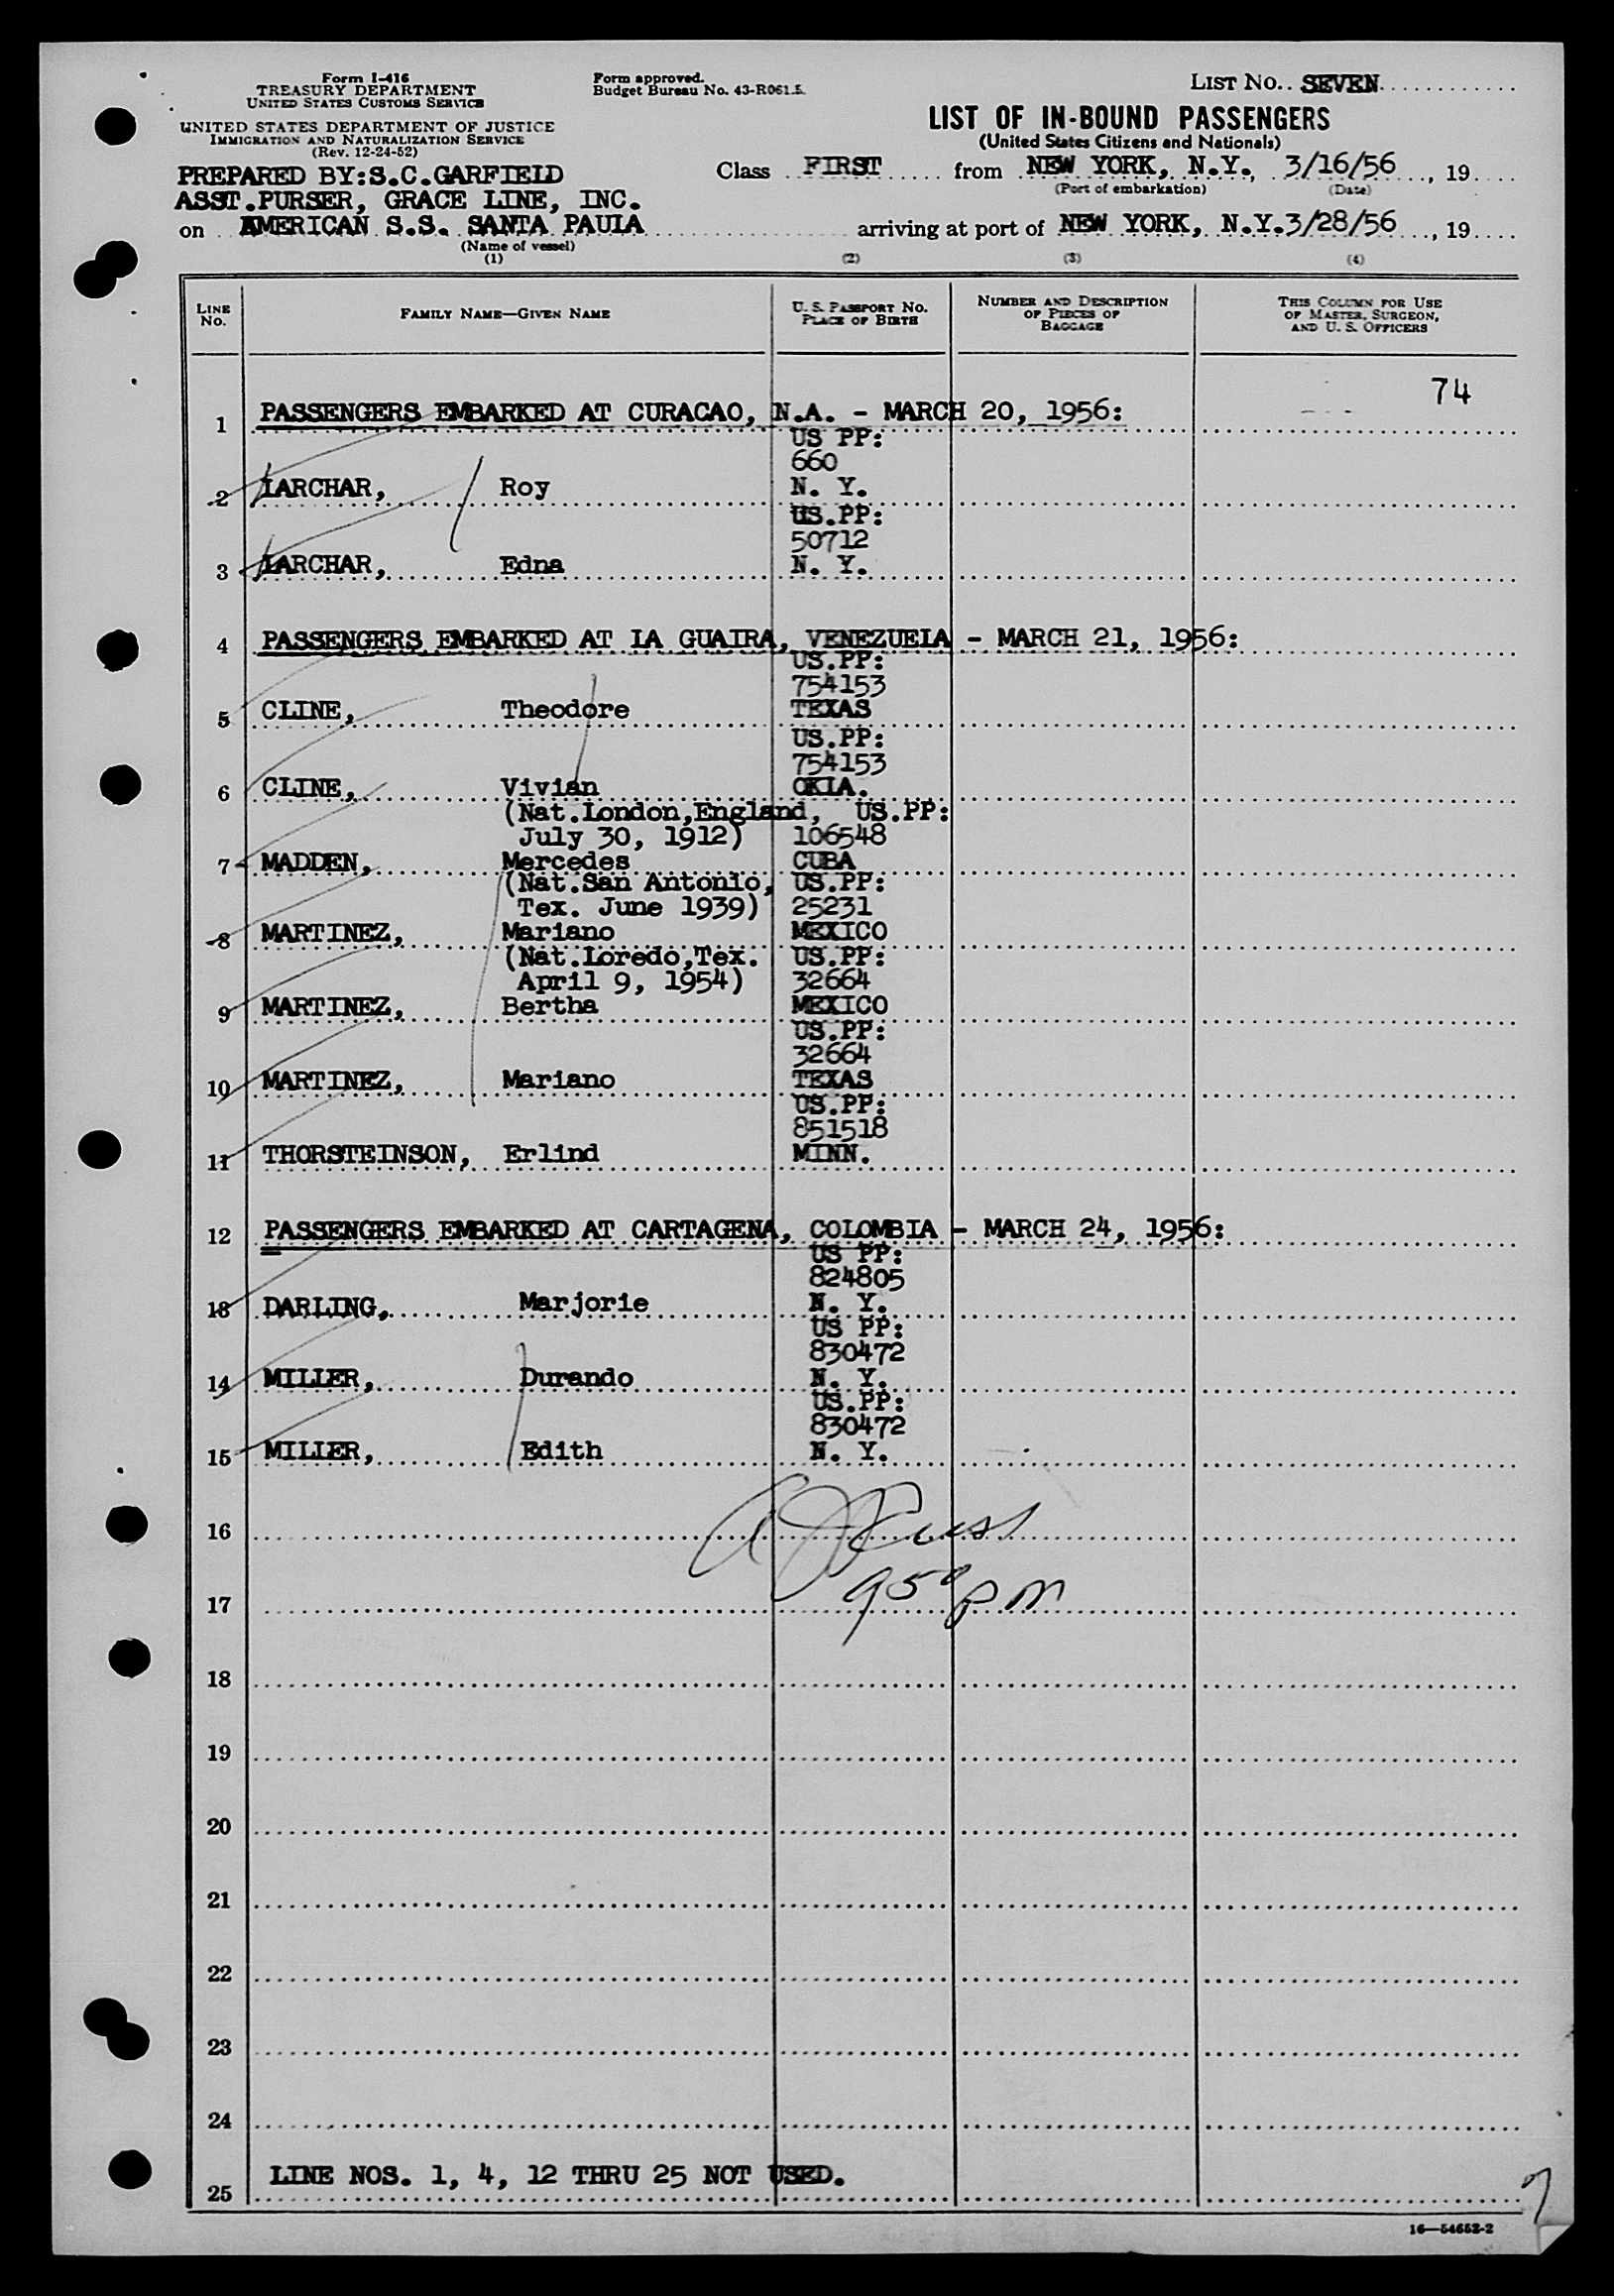 Form I-416
TREASURY DEPARTMENT
UNITED STATES CUSTOMS SERVICE
UNITED STATES DEPARTMENT OF JUSTICE
IMMIGRATION AND NATURALIZATION SERVICE
(Rev. 12-24-52)
Form approved.
Budget Bureau No. 43-R061.5.
LIST NO. SEVEN
LIST OF IN-BOUND PASSENGERS
(United States Citizens and Nationals)
PREPARED BY:S.C.GARFIELD
ASST.PURSER, GRACE LINE, INC.
Class FIRST from NEW YORK, N.Y., 3/16/56, 19
(Port of embarkation) (Date)
on AMERICAN S.S. SANTA PAULA arriving at port of NEW YORK, N.Y.3/28/56, 19
(Name of vessel)
(1) (2) (3) (4)
LINE NO. FAMILY NAME—GIVEN NAME U. S. PASSPORT NO. PLACE OF BIRTH NUMBER AND DESCRIPTION OF PIECES OF BAGGAGE THIS COLUMN FOR USE OF MASTER, SURGEON, AND U. S. OFFICERS
74
1 PASSENGERS EMBARKED AT CURACAO, N.A. - MARCH 20, 1956:
US PP:
660
2 LARCHAR, Roy N. Y.
US.PP:
50712
3 LARCHAR, Edna N. Y.
4 PASSENGERS EMBARKED AT LA GUAIRA, VENEZUELA - MARCH 21, 1956:
US.PP:
754153
5 CLINE, Theodore TEXAS
US.PP:
754153
6 CLINE, Vivian OKLA.
(Nat.London,England, US.PP:
July 30, 1912) 106548
7 MADDEN, Mercedes CUBA
(Nat.San Antonio, US.PP:
Tex. June 1939) 25231
8 MARTINEZ, Mariano MEXICO
(Nat.Loredo,Tex. US.PP:
April 9, 1954) 32664
9 MARTINEZ, Bertha MEXICO
US.PP:
32664
10 MARTINEZ, Mariano TEXAS
US.PP:
851518
11 THORSTEINSON, Erlind MINN.
12 PASSENGERS EMBARKED AT CARTAGENA, COLOMBIA - MARCH 24, 1956:
US PP:
824805
13 DARLING, Marjorie N. Y.
US PP:
830472
14 MILLER, Durando N. Y.
US.PP:
830472
15 MILLER, Edith N. Y.
16
950 pm
17
18
19
20
21
22
23
24
LINE NOS. 1, 4, 12 THRU 25 NOT USED.
25
7
16—54652-2